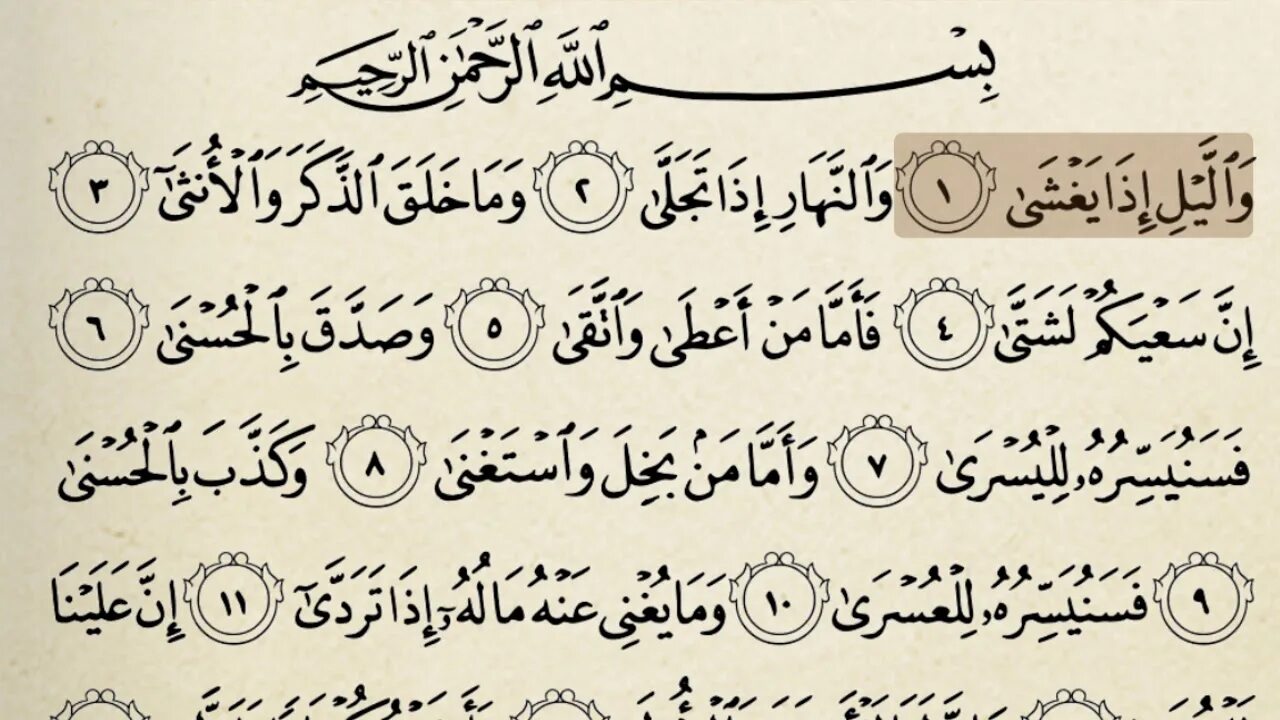 بِسْمِ ٱللَّهِ ٱلرَّحْمَٰنِ ٱلرَّحِيمِ
وَٱلَّيْلِ إِذَا يَغْشَىٰ ١ وَٱلنَّهَارِ إِذَا تَجَلَّىٰ ٢ وَمَا خَلَقَ ٱلذَّكَرَ وَٱلْأُنثَىٰٓ ٣
إِنَّ سَعْيَكُمْ لَشَتَّىٰ ٤ فَأَمَّا مَنْ أَعْطَىٰ وَٱتَّقَىٰ ٥ وَصَدَّقَ بِٱلْحُسْنَىٰ ٦
فَسَنُيَسِّرُهُۥ لِلْيُسْرَىٰ ٧ وَأَمَّا مَنۢ بَخِلَ وَٱسْتَغْنَىٰ ٨ وَكَذَّبَ بِٱلْحُسْنَىٰ
٩ فَسَنُيَسِّرُهُۥ لِلْعُسْرَىٰ ١٠ وَمَا يُغْنِى عَنْهُ مَالُهُۥٓ إِذَا تَرَدَّىٰٓ ١١ إِنَّ عَلَيْنَا